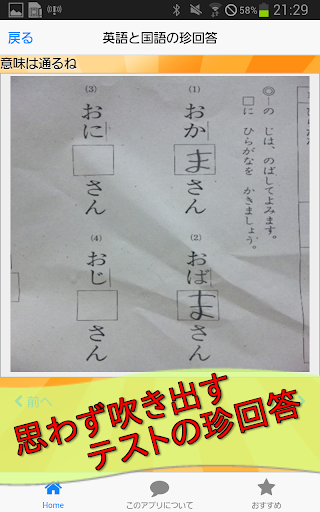 58% 21:29
戻る
英語と国語の珍回答
意味は通るね
◎―の じは、のばしてよみます。
□に ひらがなを かきましょう。
(1)
おかまさん
(2)
おばまさん
(3)
おに□さん
(4)
おじ□さん
前へ
思わず吹き出す
テストの珍回答
Home
このアプリについて
おすすめ